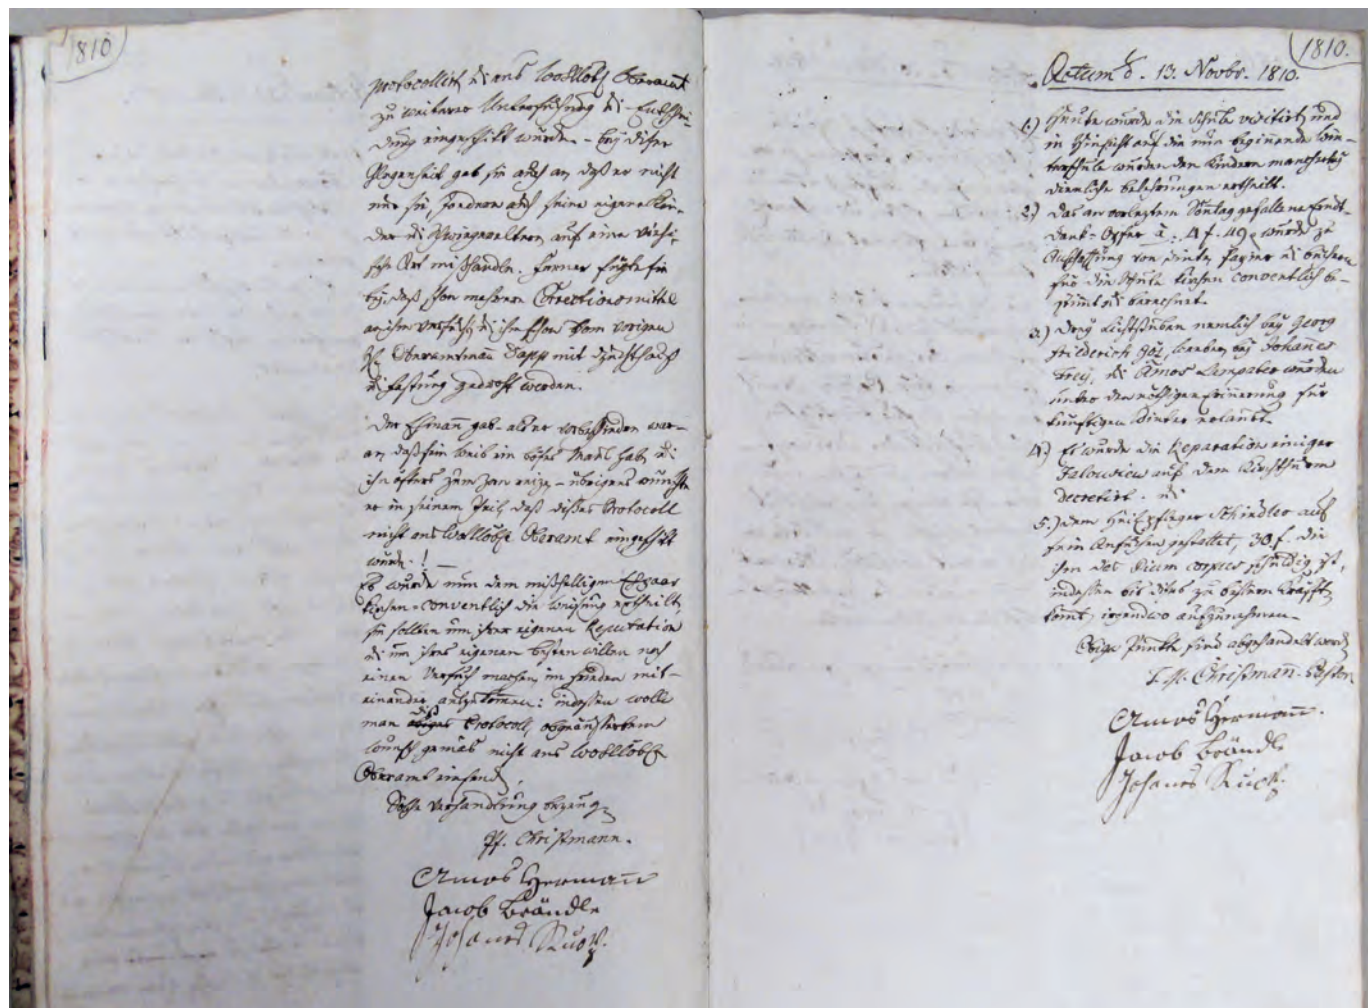 1810
protocollirt & ans Wohllöbl. Oberamt
zu weiterer Untersuchung & Entschei-
dung eingeschikt würde. - bey diser
Gelegenheit gab sie auch an, daß er nicht
nur sie, sondern auch seine eigene Kin-
der & Schwiegereltern auf eine viehi-
sche Art mißhandle. ferner fügte sie
bey, daß schon mehrere Correctionsmittel
an ihm versucht, & ihm schon vom vorigen
H. Oberamtmann Sapp mit Zuchthauß
& Festung gedroht worden.
Der Ehmann gab - als er
an, daß sein Weib ein böses Maul hab, &
ihn öfters zum Zorn reize - übrigens wünschte
er in seinem Theil, daß dises Protocoll
nicht ans Wohllöbl. Oberamt eingeschikt
würde. ! -
Es wurde nun dem mißhelligen Ehpaar
kirchen-conventlich die Weisung ertheilt,
sie sollten um ihrer eigenen Reputation
& um ihres eigenen besten willen noch
einen Versuch machen, im frieden mit-
einander auszukomen: indessen wolle
man diß Protocoll, ihrem
Wunsch gemäs nicht ans Wohllöbl.
Oberamt einsend.
Dise Verhandlung bezeug.
Pf. Christmann.
Amos Hermann
Jacob Brändle
Johanes Ruoß.
1810.
Actum d. 13. Novbr. 1810.
1.) Heute wurde die Schule visitirt, und
in Hinsicht auf die nun beginnende Win-
terschule wurden den Kindern mancherley
dienliche belehrungen ertheilt.
2.) das am vorleztem Sontag gefallene Erndt-
dank-Opfer à: 4 f. 49. wurde zu
Anschaffung von Dinte, Papier & büchern
für die Schule kirchen conventlich be-
stimt & berechnet.
3.) Drey Lichtstuben nemlich bey Georg
Friederich Göz, Weeber, bey Johannes
Frey, & Amos Lempater wurden
unter der nöthigen Erinnerung für
künftigen Winter erlaubt.
4.) Es wurde die Reparation einiger
Jalousien auf dem Kirchthurm
decretirt. &
5.) dem Heil.pfleger Schindler auf
sein Ansuchen gestattet, 30 f. die
ihm das Pium corpus schuldig ist,
indessen bis dises zu bessern Kräfft.
komt, irgendwo aufzunehmen.
Obige Punkte sind abgehandelt word.
T. Pf. Christmann.
Amos Hermann.
Jacob Brändle
Johanes Ruoß.